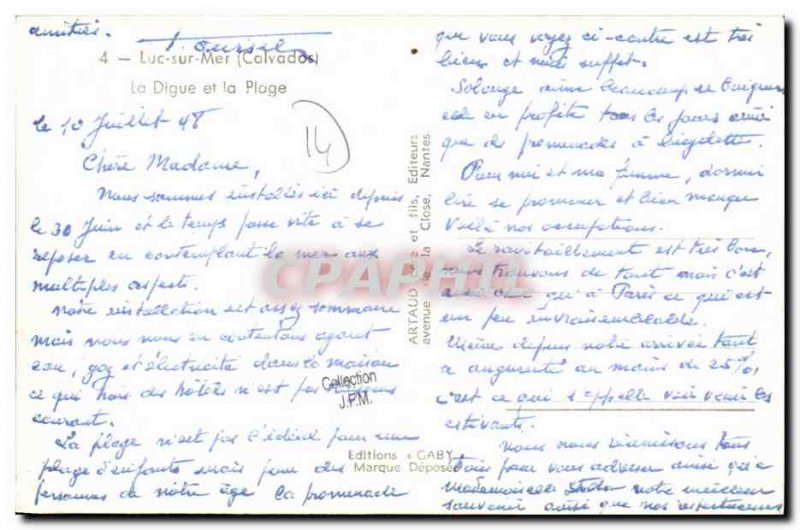 amitiés.
4 – Luc-sur-Mer (Calvados)
La Digue et la Plage
14
le 10 Juillet 48
Chère Madame,
Nous sommes installés ici depuis
le 30 Juin et le temps passe vite à se
reposer en contemplant la mer aux
multiples aspects.
Notre installation est assez sommaire
mais nous nous en contentons ayant
eau, gaz et électricité dans la maison
ce qui hors des hôtels n'est pas
courant.
La plage n'est pas l'idéal pour une
plage d'enfants mais pour des
personnes de notre âge la promenade
que vous voyez ci-contre est très
bien et nous suffit.
Solange aime beaucoup se baigner
elle en profite tous les jours ainsi
que des promenades à bicyclette.
Pour moi et ma femme, dormir
lire se promener et bien manger
Voilà nos occupations.
Le ravitaillement est très bon,
nous trouvons de tout mais c'est
aussi cher qu'à Paris ce qui est
un peu invraisemblable.
Même depuis notre arrivée tout
a augmenté au moins de 25%,
c'est ce qui s'appelle voir venir les
estivants.
Nous nous réunissons tous
trois pour vous adresser ainsi qu'à
Mademoiselle notre meilleur
souvenir ainsi que nos respectueuses
ARTAUD Père et fils, Editeurs
avenue de la Close, Nantes
CPAPHIL
Collection
J.P.M.
Editions « GABY »
Marque Déposée